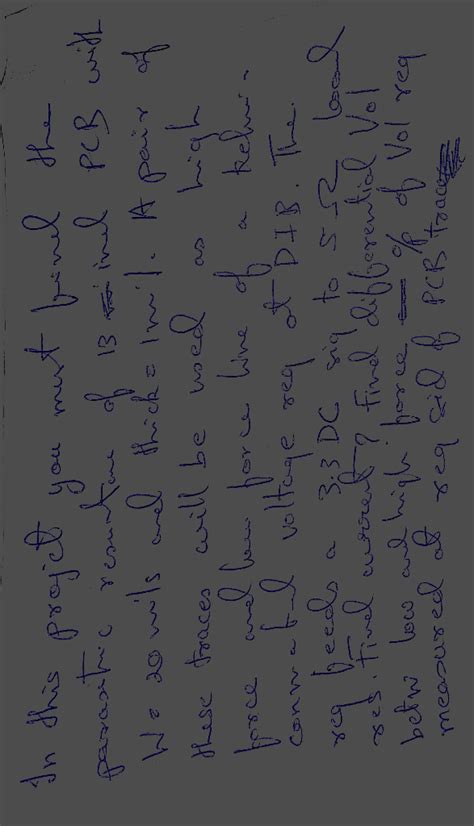 In this project you must find the
parasitic resistance of 13 inch PCB with
W= 20 mils and thick= 1 mil. A pair of
these traces will be used as high
force and low force line of a kelvin
voltage reg at DIB. The
reg feeds a 3.3 DC sig to 5 Ω load
res. Find current? Find differential Vol
betw low and high force of Vol reg
measured at reg sid of PCB trace